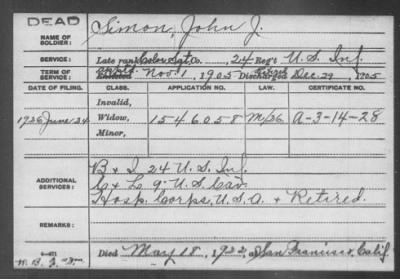 DEAD
NAME OF SOLDIER: Simon, John J.
SERVICE: Late rank Color Sgt Co. , 24 Reg't U.S. Inf.
TERM OF SERVICE: Enlisted Nov. 1, 1905 Discharged Dec. 29, 1905
DATE OF FILING. CLASS. APPLICATION NO. LAW. CERTIFICATE NO.
Invalid,
1926 June 24 Widow, 1546058 A-3-14-28
Minor,
ADDITIONAL SERVICES: B & I 24 U.S. Inf.
9 U.S. Cav.
Hosp. Corps, U.S.A. & Retired.
REMARKS:
Died May 18, 1922, at San Francisco, Calif.